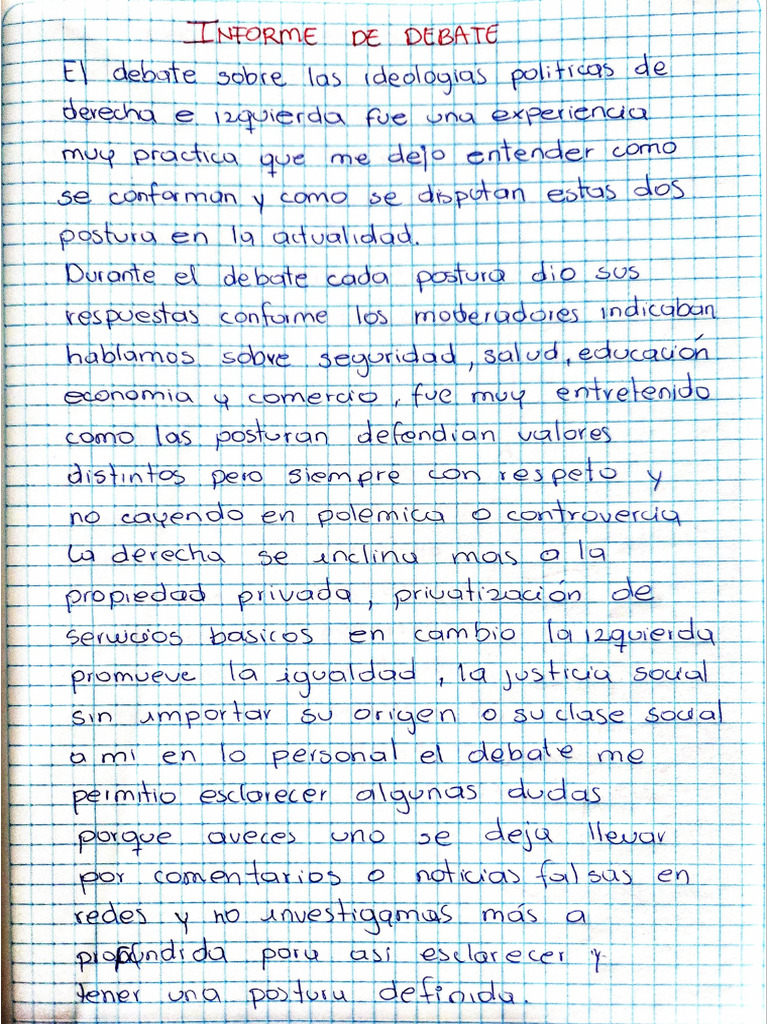 INFORME DE DEBATE
El debate sobre las ideologias politicas de
derecha e izquierda fue una experiencia
muy practica que me dejo entender como
se conforman y como se disputan estas dos
postura en la actualidad.
Durante el debate cada postura dio sus
respuestas conforme los moderadores indicaban
hablamos sobre seguridad, salud, educación
economia y comercio, fue muy entretenido
como las posturan defendian valores
distintos pero siempre con respeto y
no cayendo en polemica o controvercia
la derecha se inclina mas a la
propiedad privada, privatización de
servicios basicos en cambio la izquierda
promueve la igualdad, la justicia social
sin importar su origen o su clase social
a mi en lo personal el debate me
permitio esclarecer algunas dudas
porque aveces uno se deja llevar
por comentarios o noticias falsas en
redes y no investigamas más a
profundida para asi esclarecer y
tener una postura definida.